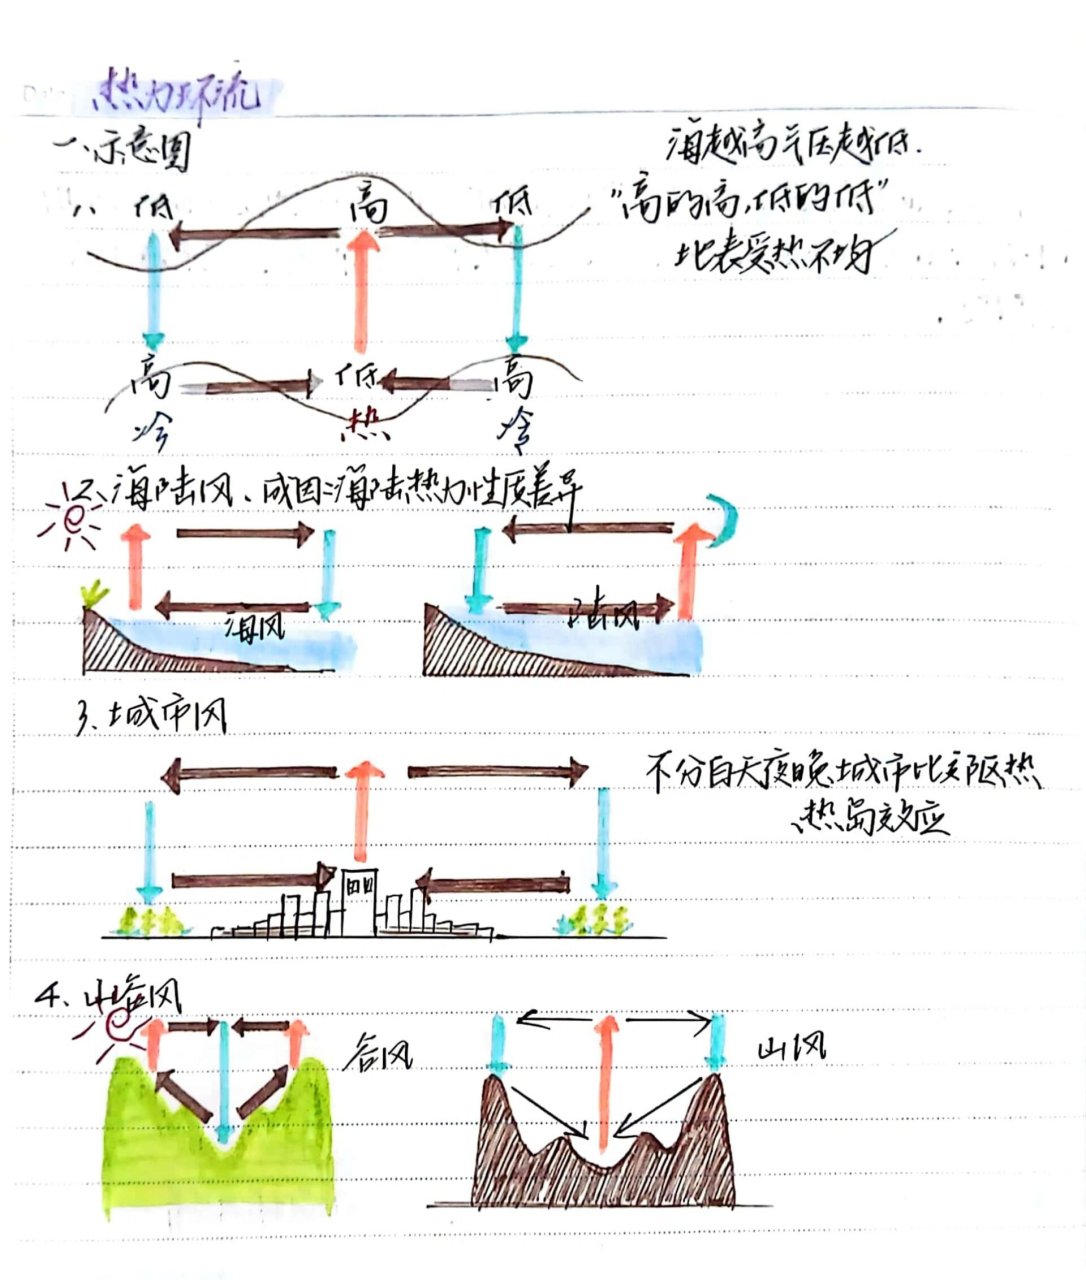 热力环流
一、示意图
海越高气压越低.
1、 低 高 低
"高的高,低的低"
地表受热不均
高 低 高
冷 热 冷
2、海陆风、成因:海陆热力性质差异
海风 陆风
3、城市风
不分白天夜晚城市比郊区热
热岛效应
4、山谷风
谷风 山风